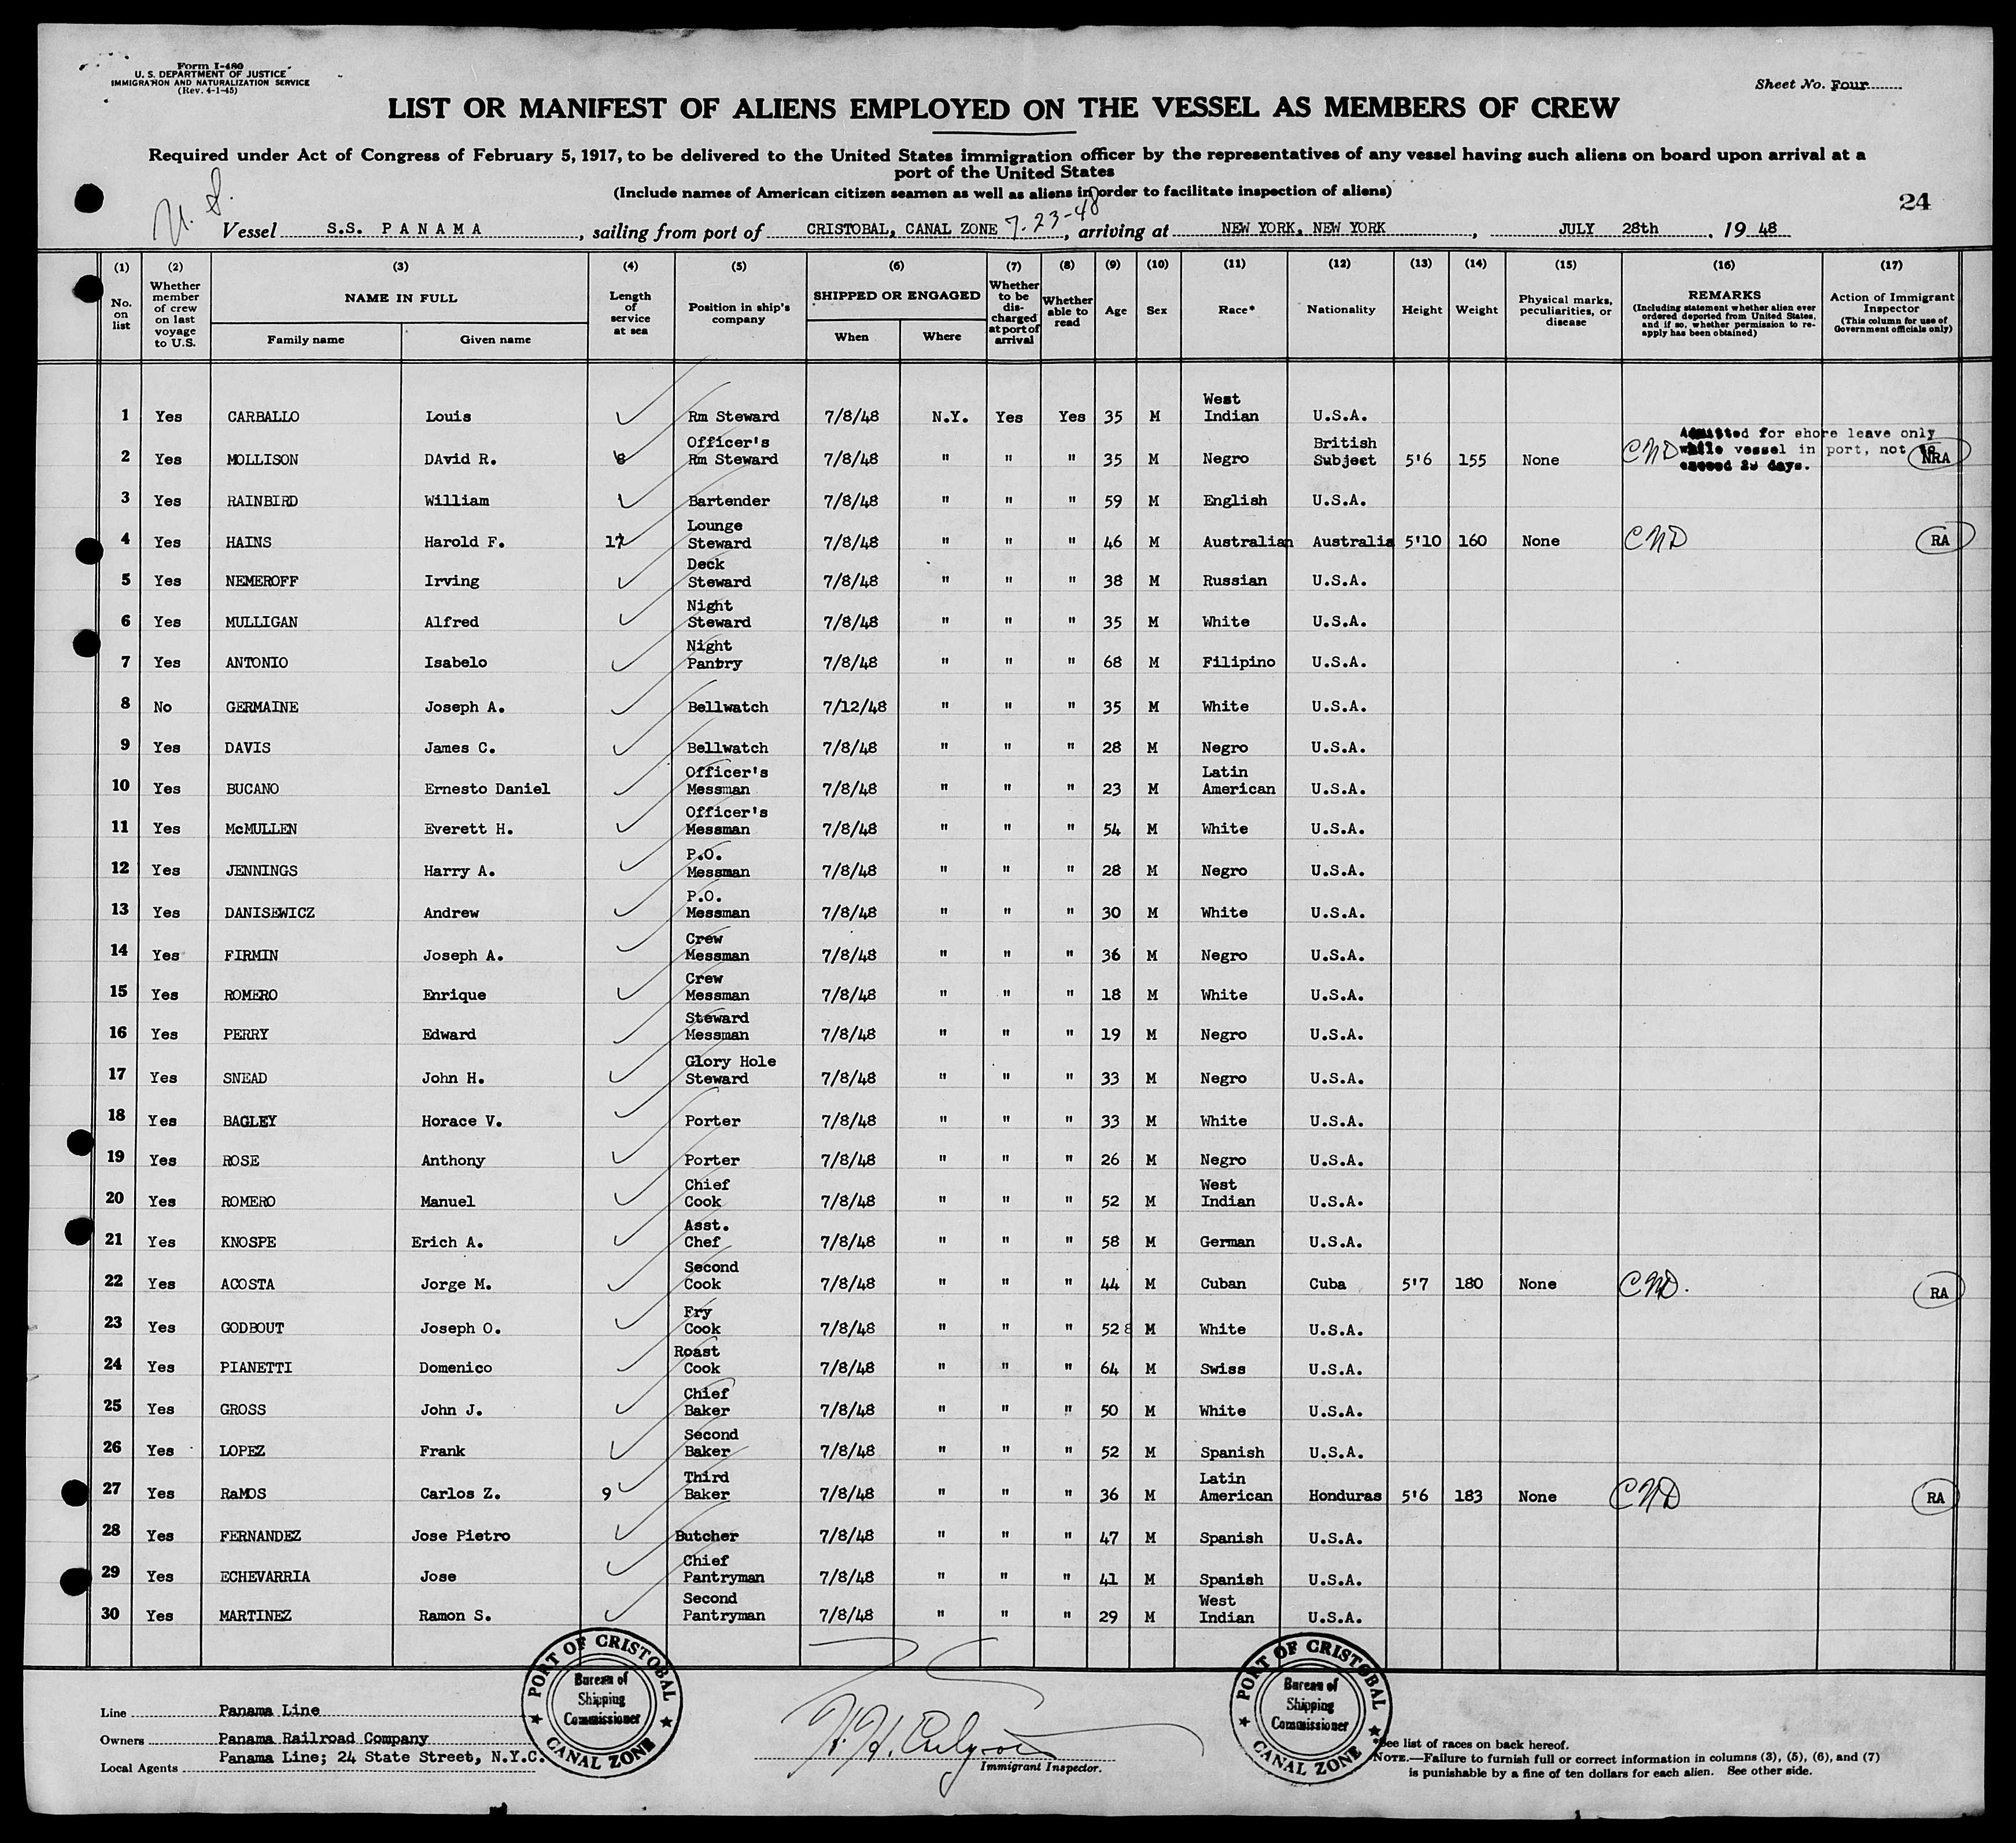 Form I-480
U. S. DEPARTMENT OF JUSTICE
IMMIGRATION AND NATURALIZATION SERVICE
(Rev. 4-1-45)
Sheet No. Four
LIST OR MANIFEST OF ALIENS EMPLOYED ON THE VESSEL AS MEMBERS OF CREW
Required under Act of Congress of February 5, 1917, to be delivered to the United States immigration officer by the representatives of any vessel having such aliens on board upon arrival at a
port of the United States
(Include names of American citizen seamen as well as aliens in order to facilitate inspection of aliens)
24
U. S.
Vessel S.S. PANAMA, sailing from port of CRISTOBAL, CANAL ZONE 7-23-48, arriving at NEW YORK, NEW YORK, JULY 28th, 1948
(1) (2) (3) (4) (5) (6) (7) (8) (9) (10) (11) (12) (13) (14) (15) (16) (17)
No. on list
Whether member of crew on last voyage to U.S.
NAME IN FULL
Family name
Given name
Length of service at sea
Position in ship's company
SHIPPED OR ENGAGED
When
Where
Whether to be discharged at port of arrival
Whether able to read
Age
Sex
Race*
Nationality
Height
Weight
Physical marks, peculiarities, or disease
REMARKS
(Including statement whether alien ever ordered deported from United States, and if so, whether permission to reapply has been obtained)
Action of Immigrant Inspector
(This column for use of Government officials only)
1 Yes CARBALLO Louis Rm Steward 7/8/48 N.Y. Yes Yes 35 M West Indian U.S.A.
2 Yes MOLLISON DAvid R. 8 Officer's Rm Steward 7/8/48 " " " 35 M Negro British Subject 5'6 155 None CND Admitted for shore leave only while vessel in port, not to exceed 29 days. NRA
3 Yes RAINBIRD William Bartender 7/8/48 " " " 59 M English U.S.A.
4 Yes HAINS Harold F. 17 Lounge Steward 7/8/48 " " " 46 M Australian Australia 5'10 160 None CND RA
5 Yes NEMEROFF Irving Deck Steward 7/8/48 " " " 38 M Russian U.S.A.
6 Yes MULLIGAN Alfred Night Steward 7/8/48 " " " 35 M White U.S.A.
7 Yes ANTONIO Isabelo Night Pantry 7/8/48 " " " 68 M Filipino U.S.A.
8 No GERMAINE Joseph A. Bellwatch 7/12/48 " " " 35 M White U.S.A.
9 Yes DAVIS James C. Bellwatch 7/8/48 " " " 28 M Negro U.S.A.
10 Yes BUCANO Ernesto Daniel Officer's Messman 7/8/48 " " " 23 M Latin American U.S.A.
11 Yes McMULLEN Everett H. Officer's Messman 7/8/48 " " " 54 M White U.S.A.
12 Yes JENNINGS Harry A. P.O. Messman 7/8/48 " " " 28 M Negro U.S.A.
13 Yes DANISEWICZ Andrew P.O. Messman 7/8/48 " " " 30 M White U.S.A.
14 Yes FIRMIN Joseph A. Crew Messman 7/8/48 " " " 36 M Negro U.S.A.
15 Yes ROMERO Enrique Crew Messman 7/8/48 " " " 18 M White U.S.A.
16 Yes PERRY Edward Steward Messman 7/8/48 " " " 19 M Negro U.S.A.
17 Yes SNEAD John H. Glory Hole Steward 7/8/48 " " " 33 M Negro U.S.A.
18 Yes BAGLEY Horace V. Porter 7/8/48 " " " 33 M White U.S.A.
19 Yes ROSE Anthony Porter 7/8/48 " " " 26 M Negro U.S.A.
20 Yes ROMERO Manuel Chief Cook 7/8/48 " " " 52 M West Indian U.S.A.
21 Yes KNOSPE Erich A. Asst. Chef 7/8/48 " " " 58 M German U.S.A.
22 Yes ACOSTA Jorge M. Second Cook 7/8/48 " " " 44 M Cuban Cuba 5'7 180 None CND. RA
23 Yes GODBOUT Joseph O. Fry Cook 7/8/48 " " " 52 8 M White U.S.A.
24 Yes PIANETTI Domenico Roast Cook 7/8/48 " " " 64 M Swiss U.S.A.
25 Yes GROSS John J. Chief Baker 7/8/48 " " " 50 M White U.S.A.
26 Yes LOPEZ Frank Second Baker 7/8/48 " " " 52 M Spanish U.S.A.
27 Yes RaMOS Carlos Z. 9 Third Baker 7/8/48 " " " 36 M Latin American Honduras 5'6 183 None CND RA
28 Yes FERNANDEZ Jose Pietro Butcher 7/8/48 " " " 47 M Spanish U.S.A.
29 Yes ECHEVARRIA Jose Chief Pantryman 7/8/48 " " " 41 M Spanish U.S.A.
30 Yes MARTINEZ Ramon S. Second Pantryman 7/8/48 " " " 29 M West Indian U.S.A.
PORT OF CRISTOBAL
Bureau of Shipping Commissioner
CANAL ZONE
PORT OF CRISTOBAL
Bureau of Shipping Commissioner
CANAL ZONE
Line Panama Line
Owners Panama Railroad Company
Local Agents Panama Line; 24 State Street, N.Y.C.
Immigrant Inspector.
*See list of races on back hereof.
NOTE.—Failure to furnish full or correct information in columns (3), (5), (6), and (7)
is punishable by a fine of ten dollars for each alien. See other side.